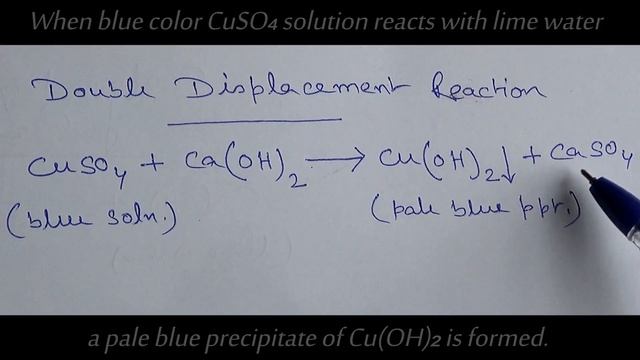 When blue color CuSO4 solution reacts with lime water
Double Displacement Reaction
CuSO4 + Ca(OH)2 → Cu(OH)2↓ + CaSO4
(blue soln.) (pale blue ppr.)
a pale blue precipitate of Cu(OH)2 is formed.